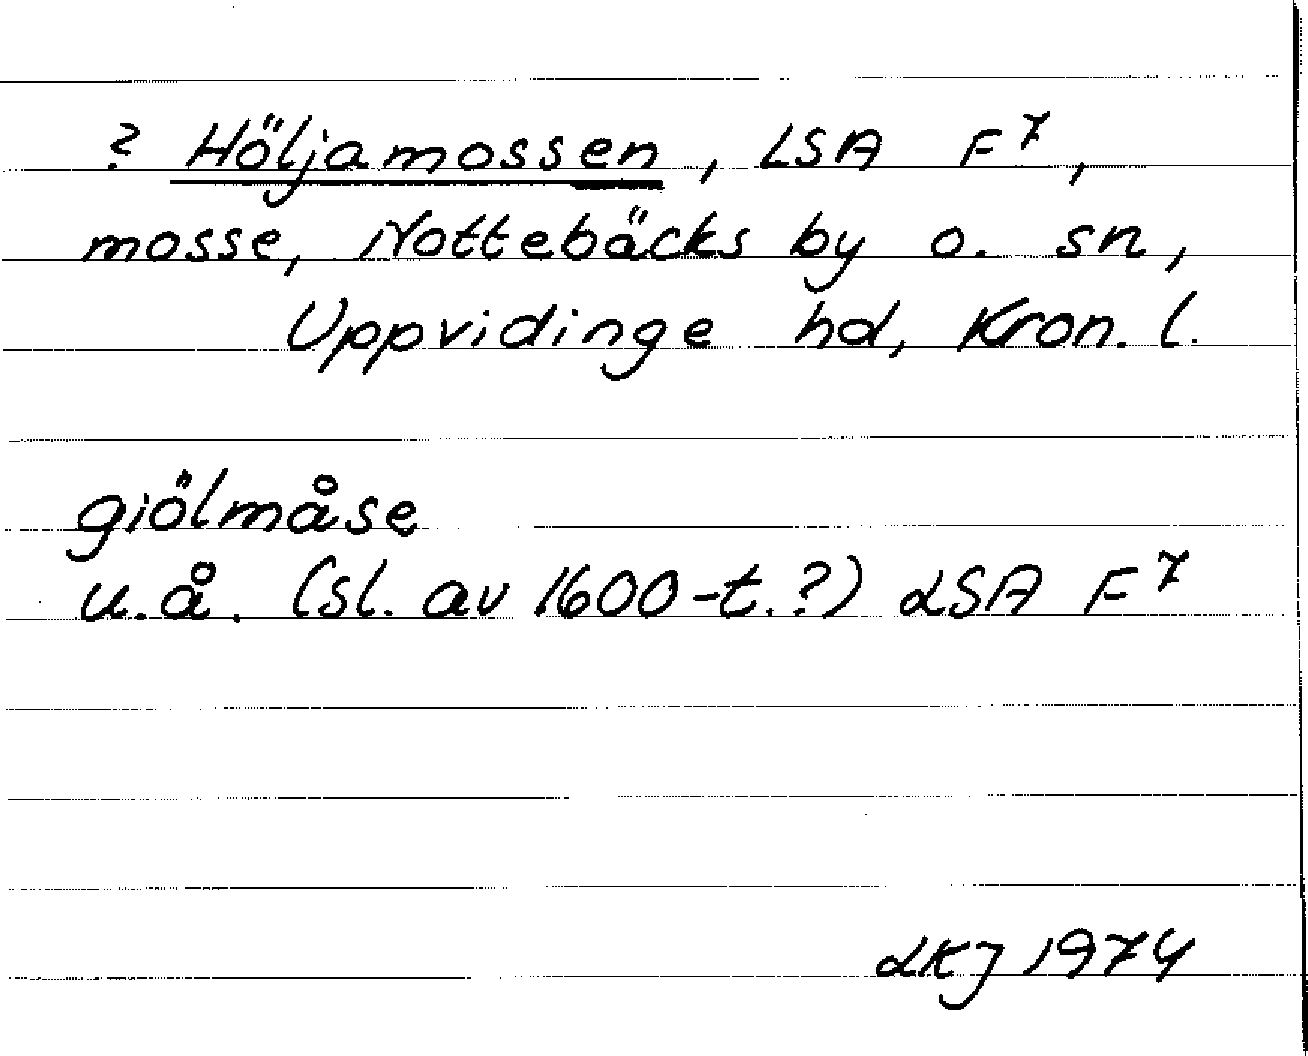 ? Höljamossen, LSA F⁷,
mosse, Nottebäcks by o. sn,
Uppvidinge hd, Kron. l.
giölmåse
u.å. (sl. av 1600-t.?) LSA F⁷
LKJ 1974